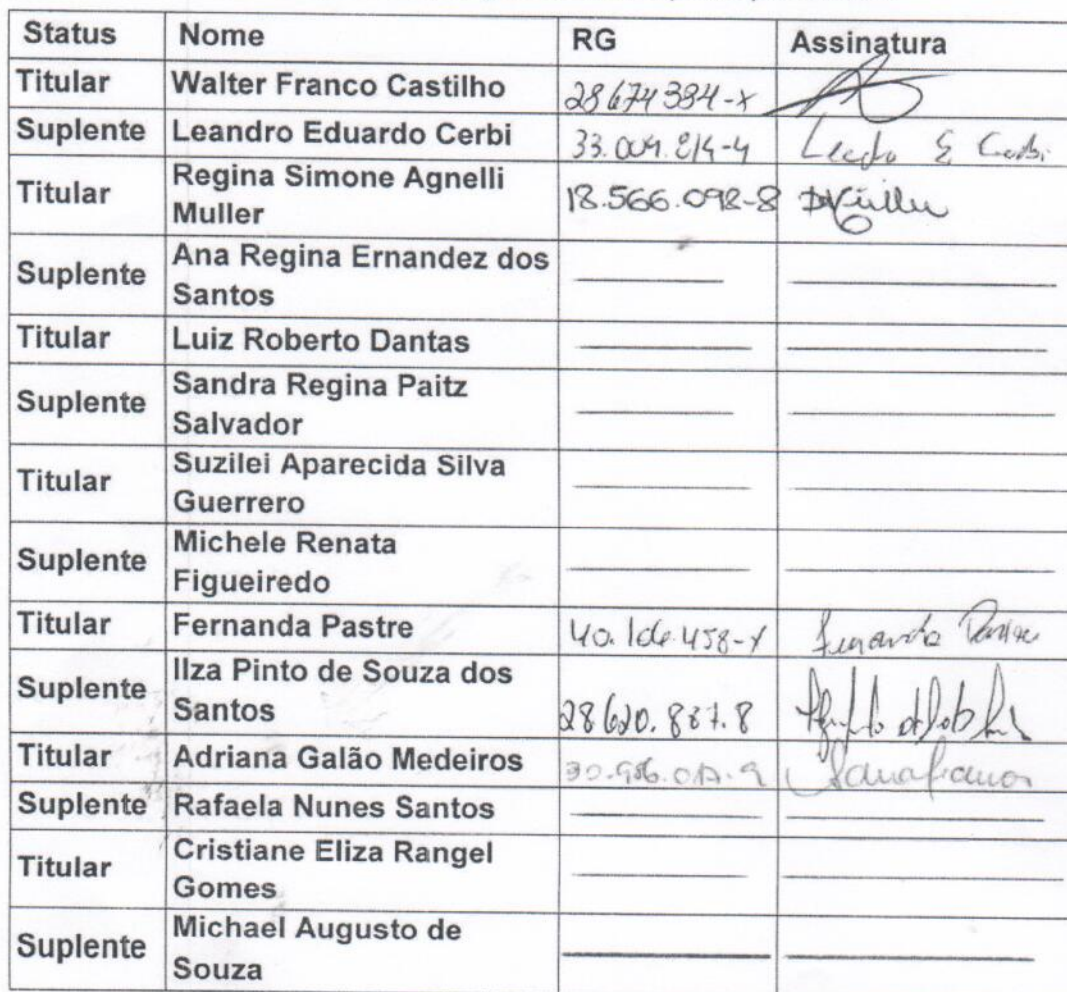 Status Nome RG Assinatura
Titular Walter Franco Castilho 28674384-x
Suplente Leandro Eduardo Cerbi
Titular Regina Simone Agnelli
Muller 18.566.098-8
Suplente Ana Regina Ernandez dos
Santos
Titular Luiz Roberto Dantas
Suplente Sandra Regina Paitz
Salvador
Titular Suzilei Aparecida Silva
Guerrero
Suplente Michele Renata
Figueiredo
Titular Fernanda Pastre
Suplente Ilza Pinto de Souza dos
Santos
Titular Adriana Galão Medeiros
Suplente Rafaela Nunes Santos
Titular Cristiane Eliza Rangel
Gomes
Suplente Michael Augusto de
Souza